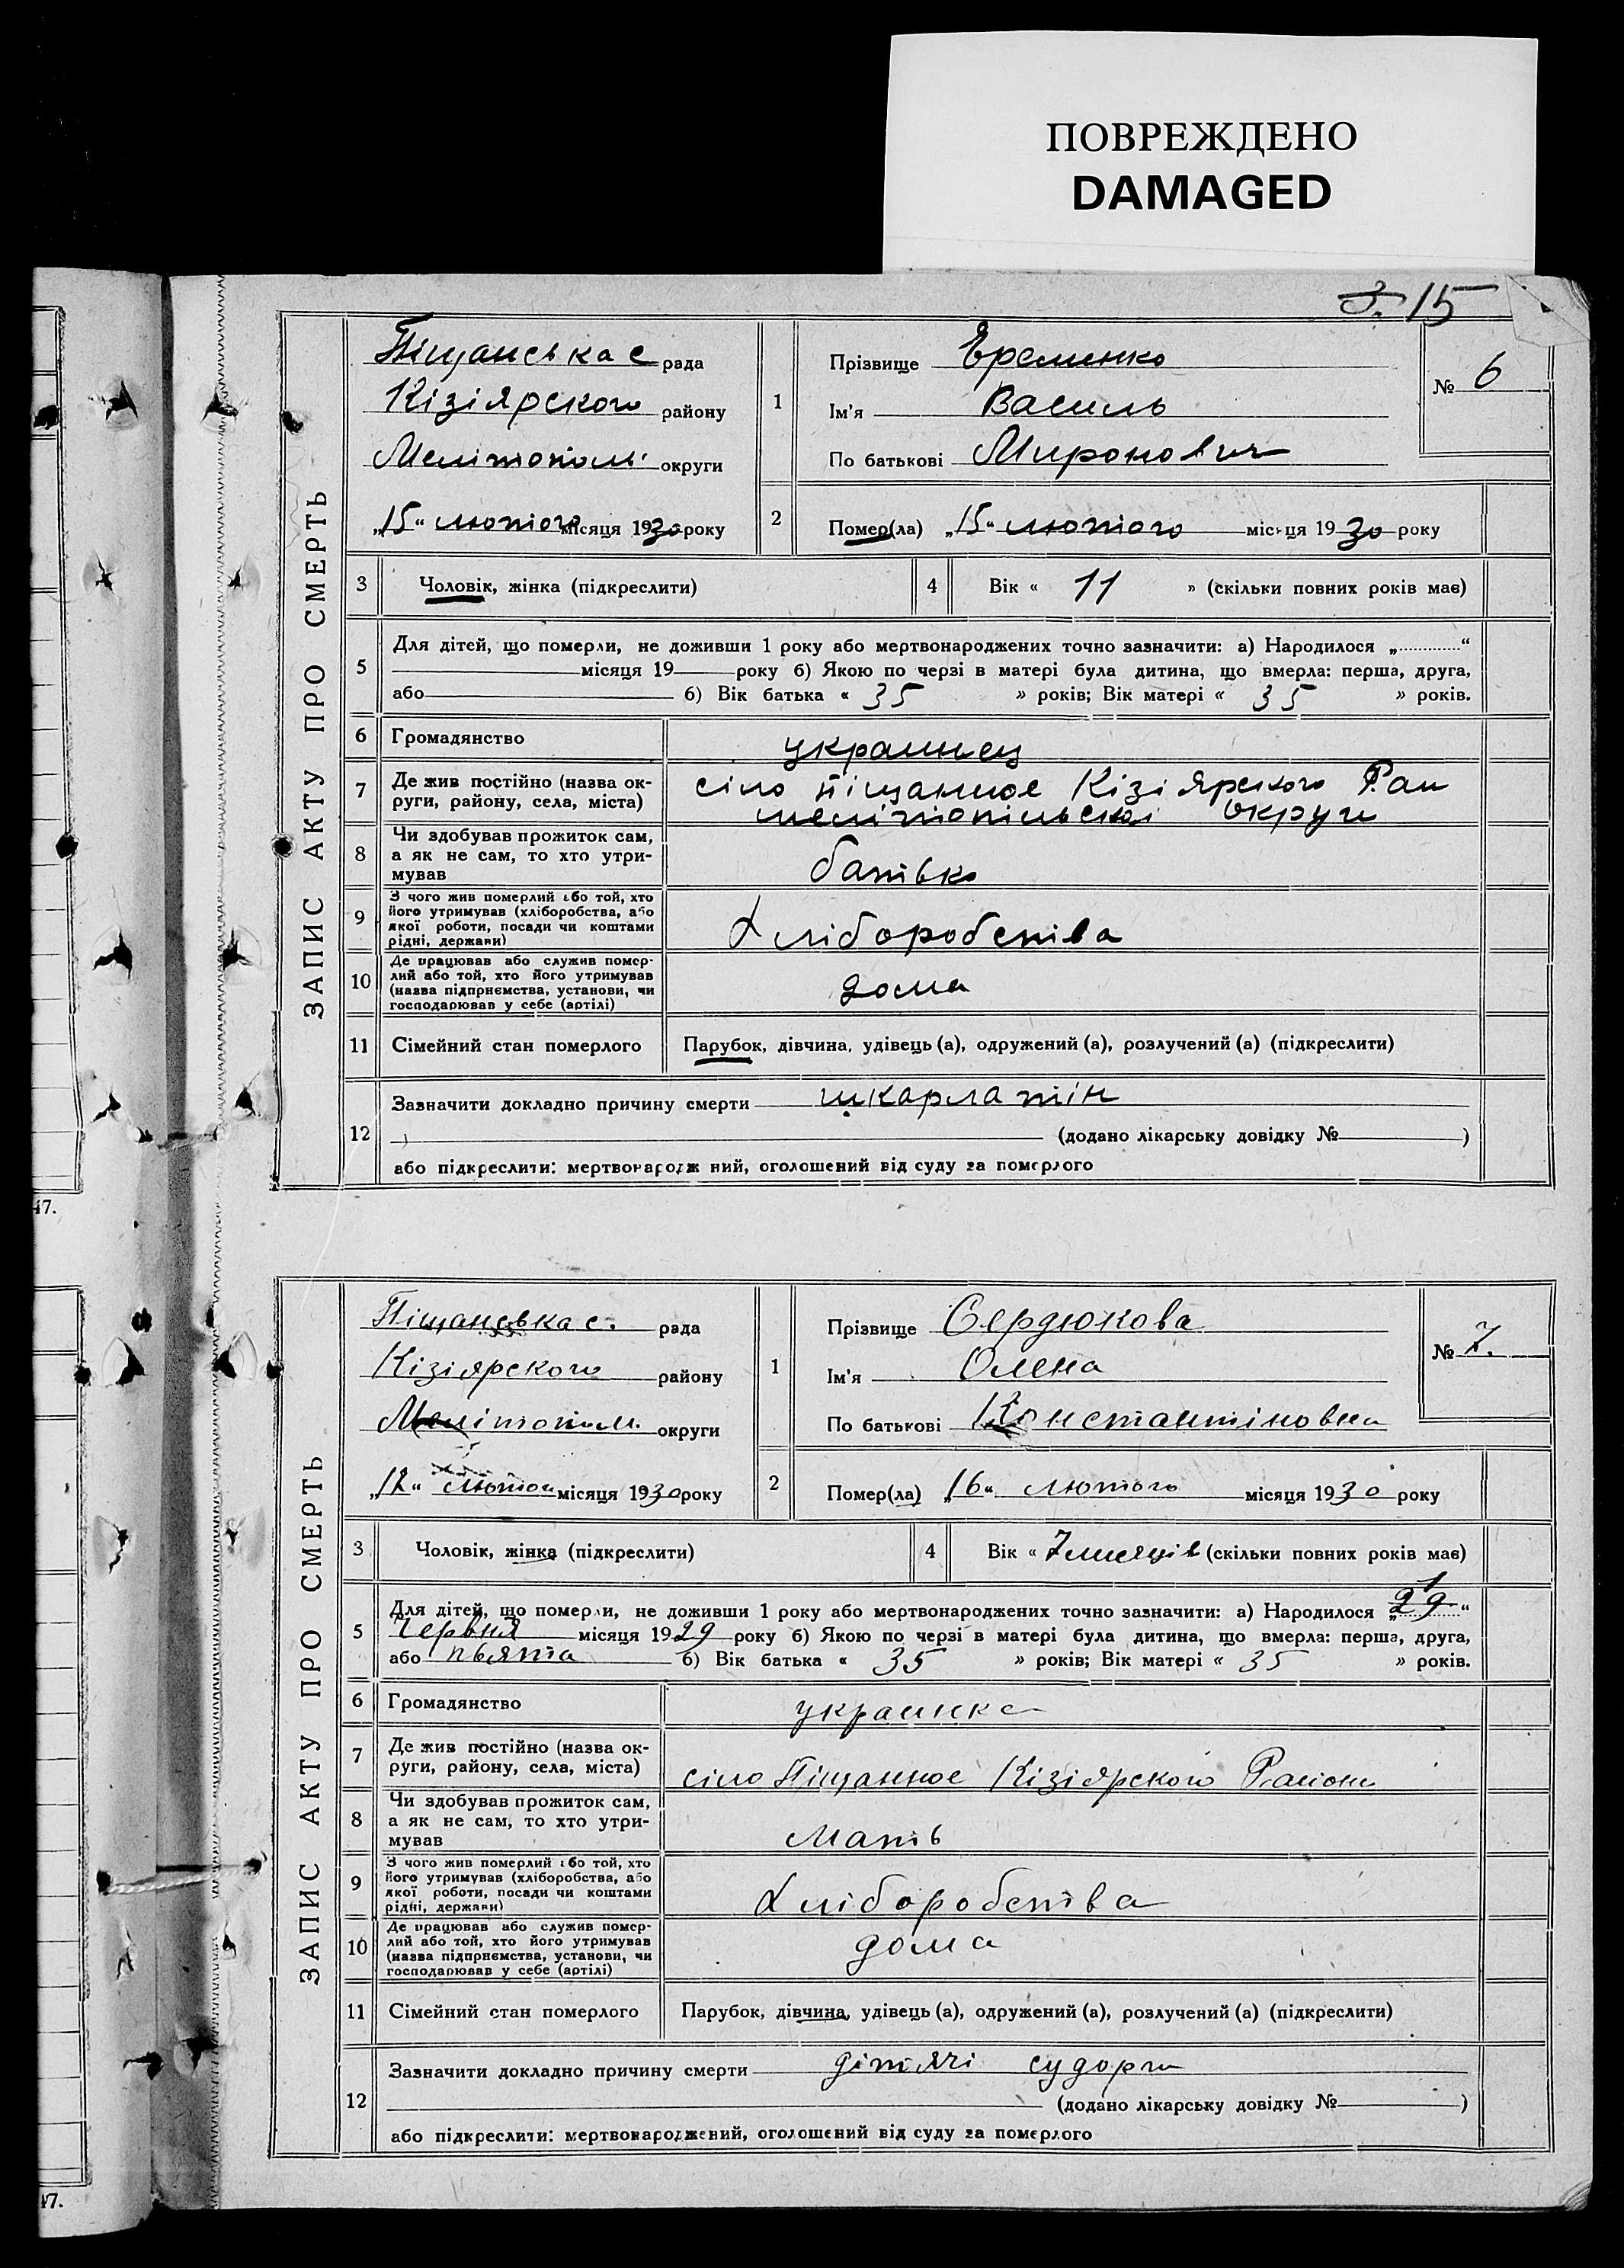 ПОВРЕЖДЕНО
DAMAGED
3. 15
ЗАПИС АКТУ ПРО СМЕРТЬ
Піщанська с рада
Кізіярского району
Мелітопол. округи
„15“ лютого місяця 1930 року
1
Прізвище Еременко
Ім'я Василь
По батькові Миронович
№ 6
2
Помер(ла) „15“ лютого місяця 1930 року
3 Чоловік, жінка (підкреслити)
4 Вік « 11 » (скільки повних років має)
5
Для дітей, що померли, не доживши 1 року або мертвонароджених точно зазначити: а) Народилося „............“
місяця 19 року б) Якою по черзі в матері була дитина, що вмерла: перша, друга,
або б) Вік батька « 35 » років; Вік матері « 35 » років.
6 Громадянство украинец
7
Де жив постійно (назва ок-
руги, району, села, міста)
сіло піщанное Кізіярского Рай
мелітопільскоі округи
8
Чи здобував прожиток сам,
а як не сам, то хто утри-
мував
батько
9
З чого жив померлий або той, хто
його утримував (хліборобства, або
якої роботи, посади чи коштами
рідні, держави)
Хліборобства
10
Де працював або служив помер-
лий або той, хто його утримував
(назва підприємства, установи, чи
господарював у себе (артілі)
дома
11 Сімейний стан померлого Парубок, дівчина, удівець (а), одружений (а), розлучений (а) (підкреслити)
12
Зазначити докладно причину смерти шкарлатін
(додано лікарську довідку № )
або підкреслити: мертвонароджений, оголошений від суду за померлого
47.
ЗАПИС АКТУ ПРО СМЕРТЬ
Піщанська с. рада
Кізіярского району
Мелітопол. округи
„17“ лютого місяця 1930 року
1
Прізвище Сердюкова
Ім'я Олена
По батькові Константіновна
№ 7.
2
Помер(ла) „16“ лютого місяця 1930 року
3 Чоловік, жінка (підкреслити)
4 Вік « 7 місяців (скільки повних років має)
5
Для дітей, що померли, не доживши 1 року або мертвонароджених точно зазначити: а) Народилося „29“
Червня місяця 1929 року б) Якою по черзі в матері була дитина, що вмерла: перша, друга,
або пьята б) Вік батька « 35 » років; Вік матері « 35 » років.
6 Громадянство украинка
7
Де жив постійно (назва ок-
руги, району, села, міста)
сіло Піщанное Кізіярского Раиону
8
Чи здобував прожиток сам,
а як не сам, то хто утри-
мував
мать
9
З чого жив померлий або той, хто
його утримував (хліборобства, або
якої роботи, посади чи коштами
рідні, держави)
Хліборобства
10
Де працював або служив помер-
лий або той, хто його утримував
(назва підприємства, установи, чи
господарював у себе (артілі)
дома
11 Сімейний стан померлого Парубок, дівчина, удівець (а), одружений (а), розлучений (а) (підкреслити)
12
Зазначити докладно причину смерти дітячі судорги
(додано лікарську довідку № )
або підкреслити: мертвонароджений, оголошений від суду за померлого
47.